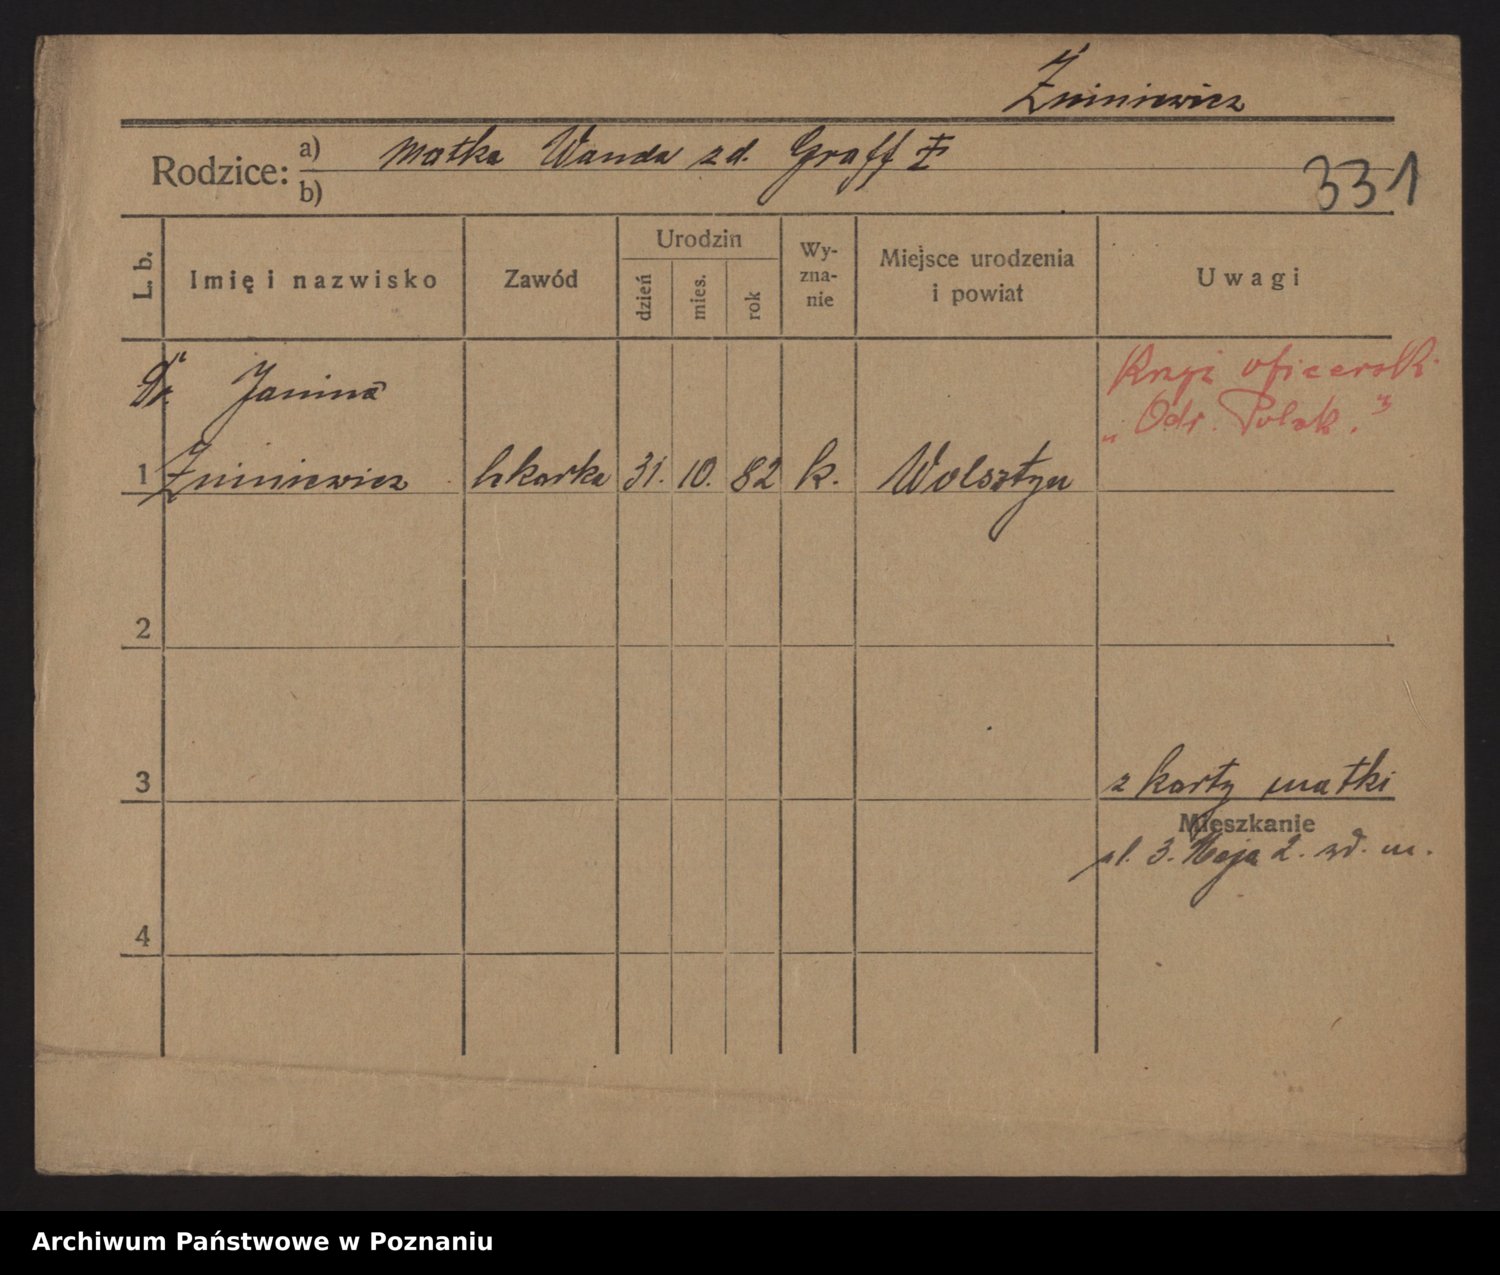 Żniniewicz
Rodzice:
a) Matka Wanda zd. Graff
b)
331
L. b.
Imię i nazwisko
Zawód
Urodzin
dzień
mies.
rok
Wy-
zna-
nie
Miejsce urodzenia
i powiat
Uwagi
Dr. Janina
Krzyż oficersk.
„Odr. Polsk.”
1 Żniniewicz lekarka 31. 10. 82 k. Wolsztyn
2
3
z karty matki
Mieszkanie
pl. 3. Maja 2.
4
Archiwum Państwowe w Poznaniu